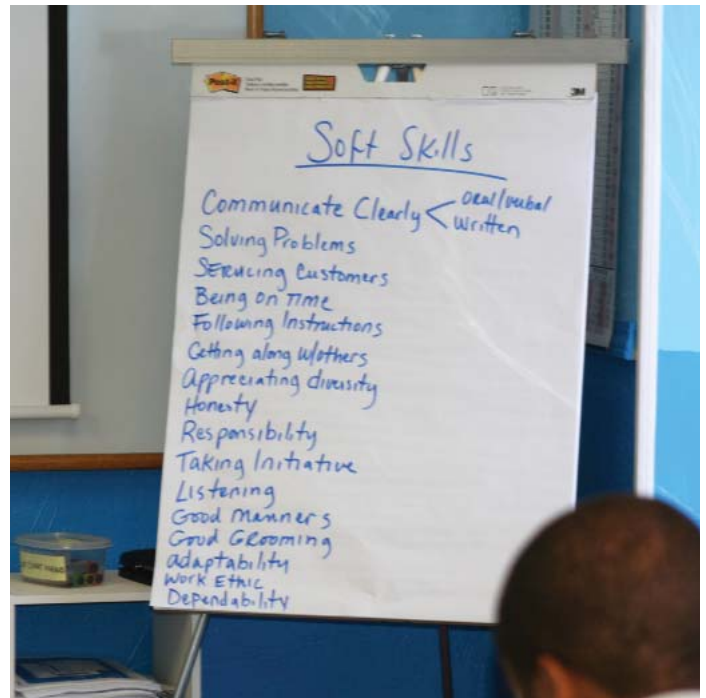 Post-it
3M
Soft Skills
Communicate Clearly < oral/verbal
written
Solving Problems
Servicing Customers
Being on Time
Following Instructions
Getting along w/others
Appreciating diversity
Honesty
Responsibility
Taking Initiative
Listening
Good Manners
Good Grooming
adaptability
Work Ethic
Dependability